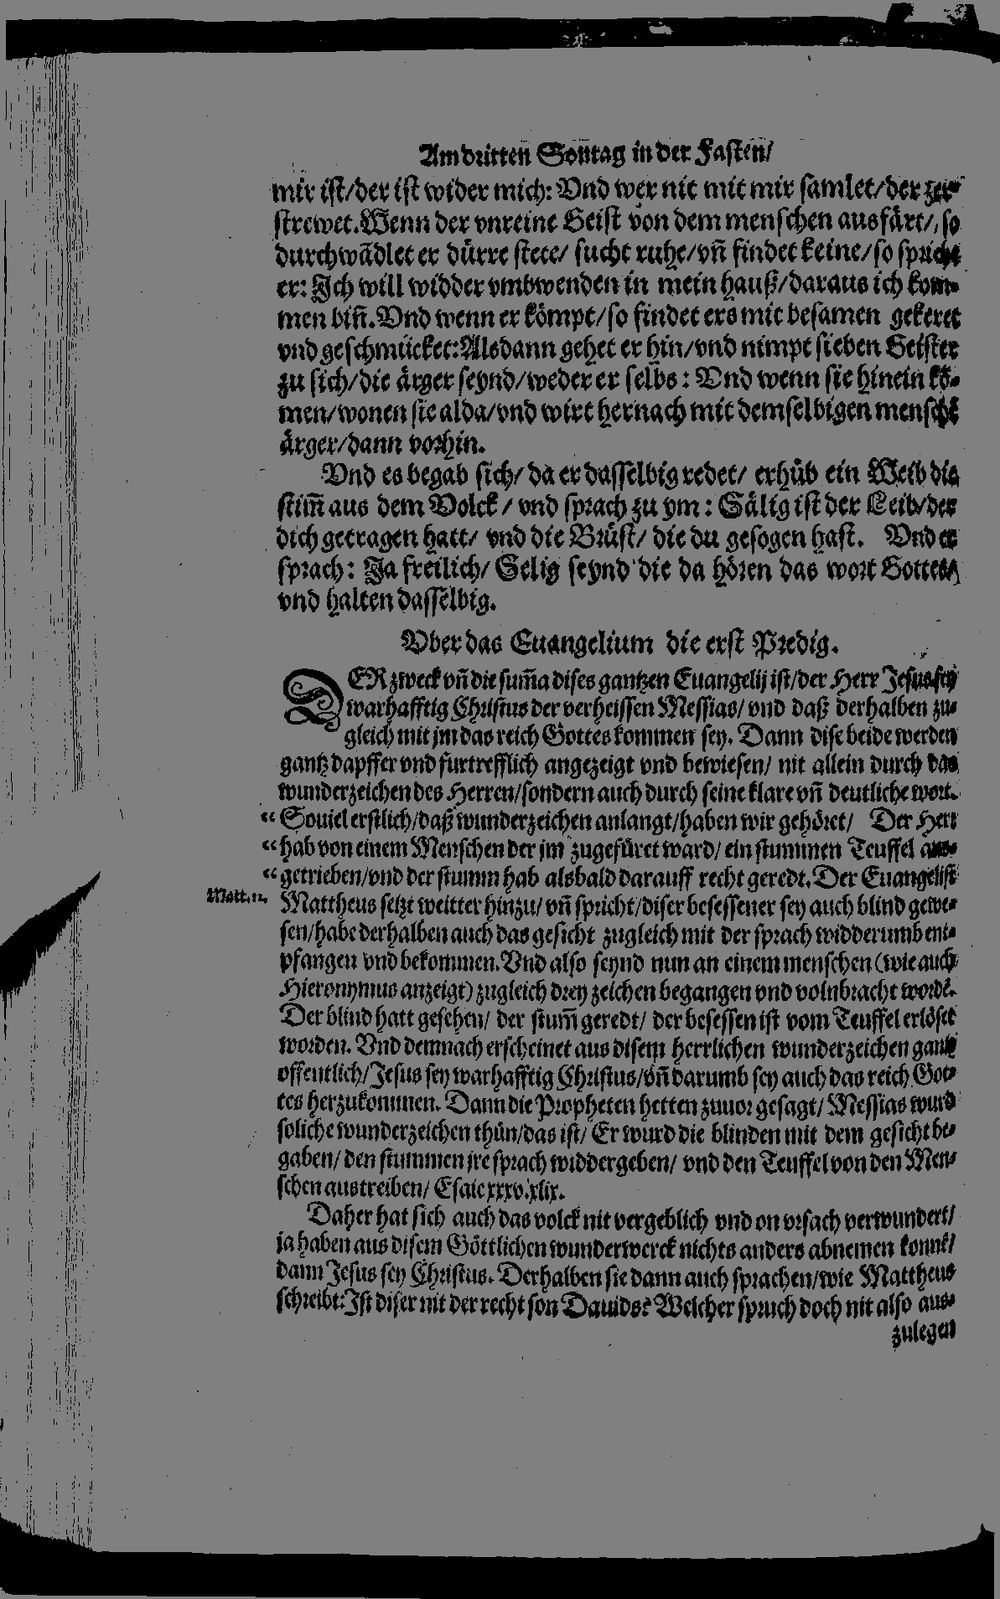 Am dritten Son̄tag in der Fasten/
mir ist/der ist wider mich: Vnd wer nit mit mir samlet/der zer-
strewet. Wenn der vnreine Geist von dem menschen ausfärt/ so
durchwādlet er dürre stete/ sucht ruhe/vn̄ findet keine/so spricht
er: Ich will widder vmbwenden in mein hauß/daraus ich kom-
men bin̄. Vnd wenn er kömpt/so findet ers mit besamen gekeret
vnd geschmücket: Alsdann gehet er hin/vnd nimpt sieben Geister
zu sich/die ärger seynd/weder er selbs: Vnd wenn sie hinein kō-
men/wonen sie alda/vnd wirt hernach mit demselbigen menschē
ärger/dann vorhin.
Vnd es begab sich/ da er dasselbig redet/ erhüb ein Weib die
stim̄ aus dem Volck/ vnd sprach zu ym: Sälig ist der Leib/der
dich getragen hatt/ vnd die Brüst/ die du gesogen hast. Vnd er
sprach: Ja freilich/ Selig seynd die da hören das wort Gottes/
vnd halten dasselbig.
Vber das Euangelium die erst Predig.
DER zweck vn̄ die sum̄a dises gantzen Euangelij ist/der Herr Jesus sey
warhafftig Christus der verheissen Messias/ vnd daß derhalben zu-
gleich mit jm das reich Gottes kommen sey. Dann dise beide werden
gantz dapffer vnd fürtrefflich angezeigt vnd bewiesen/ nit allein durch das
wunderzeichen des Herren/sondern auch durch seine klare vn̄ deutliche wort.
“ Souiel erstlich/daß wunderzeichen anlangt/haben wir gehöret/ Der Herr
“ hab von einem Menschen der jm zugefüret ward/ ein stummen Teuffel aus-
“ getrieben/vnd der stumm hab alsbald darauff recht geredt. Der Euangelist
Matt. 12. Mattheus setzt weitter hinzu/ vn̄ spricht/diser besessener sey auch blind gewe-
sen/habe derhalben auch das gesicht zugleich mit der sprach widderumb ent-
pfangen vnd bekommen. Vnd also seynd nun an einem menschen (wie auch
Hieronymus anzeigt) zugleich drey zeichen begangen vnd volnbracht wordē.
Der blind hatt gesehen/ der stum̄ geredt/ der besessen ist vom Teuffel erlöset
worden. Vnd demnach erscheinet aus disem herrlichen wunderzeichen gantz
offentlich/Jesus sey warhafftig Christus/vn̄ darumb sey auch das reich Got-
tes herzukommen. Dann die Propheten hetten zuuor gesagt/ Messias wurd
soliche wunderzeichen thün/das ist/ Er wurd die blinden mit dem gesicht be-
gaben/ den stummen jre sprach widdergeben/ vnd den Teuffel von den Men-
schen austreiben/ Esaie xxxv. xlix.
Daher hat sich auch das volck nit vergeblich vnd on vrsach verwundert/
ja haben aus disem Göttlichen wunderwerck nichts anders abnemen konnē/
dann Jesus sey Christus. Derhalben sie dann auch sprachen/wie Mattheus
schreibt: Ist diser nit der recht son Dauids? Welcher spruch doch nit also aus-
zulegen